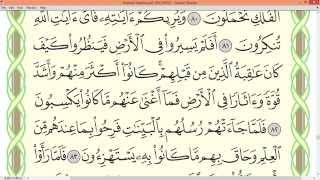 ٱلْفُلْكِ تُحْمَلُونَ ٨٠ وَيُرِيكُمْ ءَايَـٰتِهِۦ فَأَىَّ ءَايَـٰتِ ٱللَّهِ
تُنكِرُونَ ٨١ أَفَلَمْ يَسِيرُوا۟ فِى ٱلْأَرْضِ فَيَنظُرُوا۟ كَيْفَ
كَانَ عَـٰقِبَةُ ٱلَّذِينَ مِن قَبْلِهِمْ كَانُوٓا۟ أَكْثَرَ مِنْهُمْ وَأَشَدَّ
قُوَّةً وَءَاثَارًا فِى ٱلْأَرْضِ فَمَآ أَغْنَىٰ عَنْهُم مَّا كَانُوا۟ يَكْسِبُونَ ٨٢
فَلَمَّا جَآءَتْهُمْ رُسُلُهُم بِٱلْبَيِّنَـٰتِ فَرِحُوا۟ بِمَا عِندَهُم مِّنَ
ٱلْعِلْمِ وَحَاقَ بِهِم مَّا كَانُوا۟ بِهِۦ يَسْتَهْزِءُونَ ٨٣ فَلَمَّا رَأَوْا۟